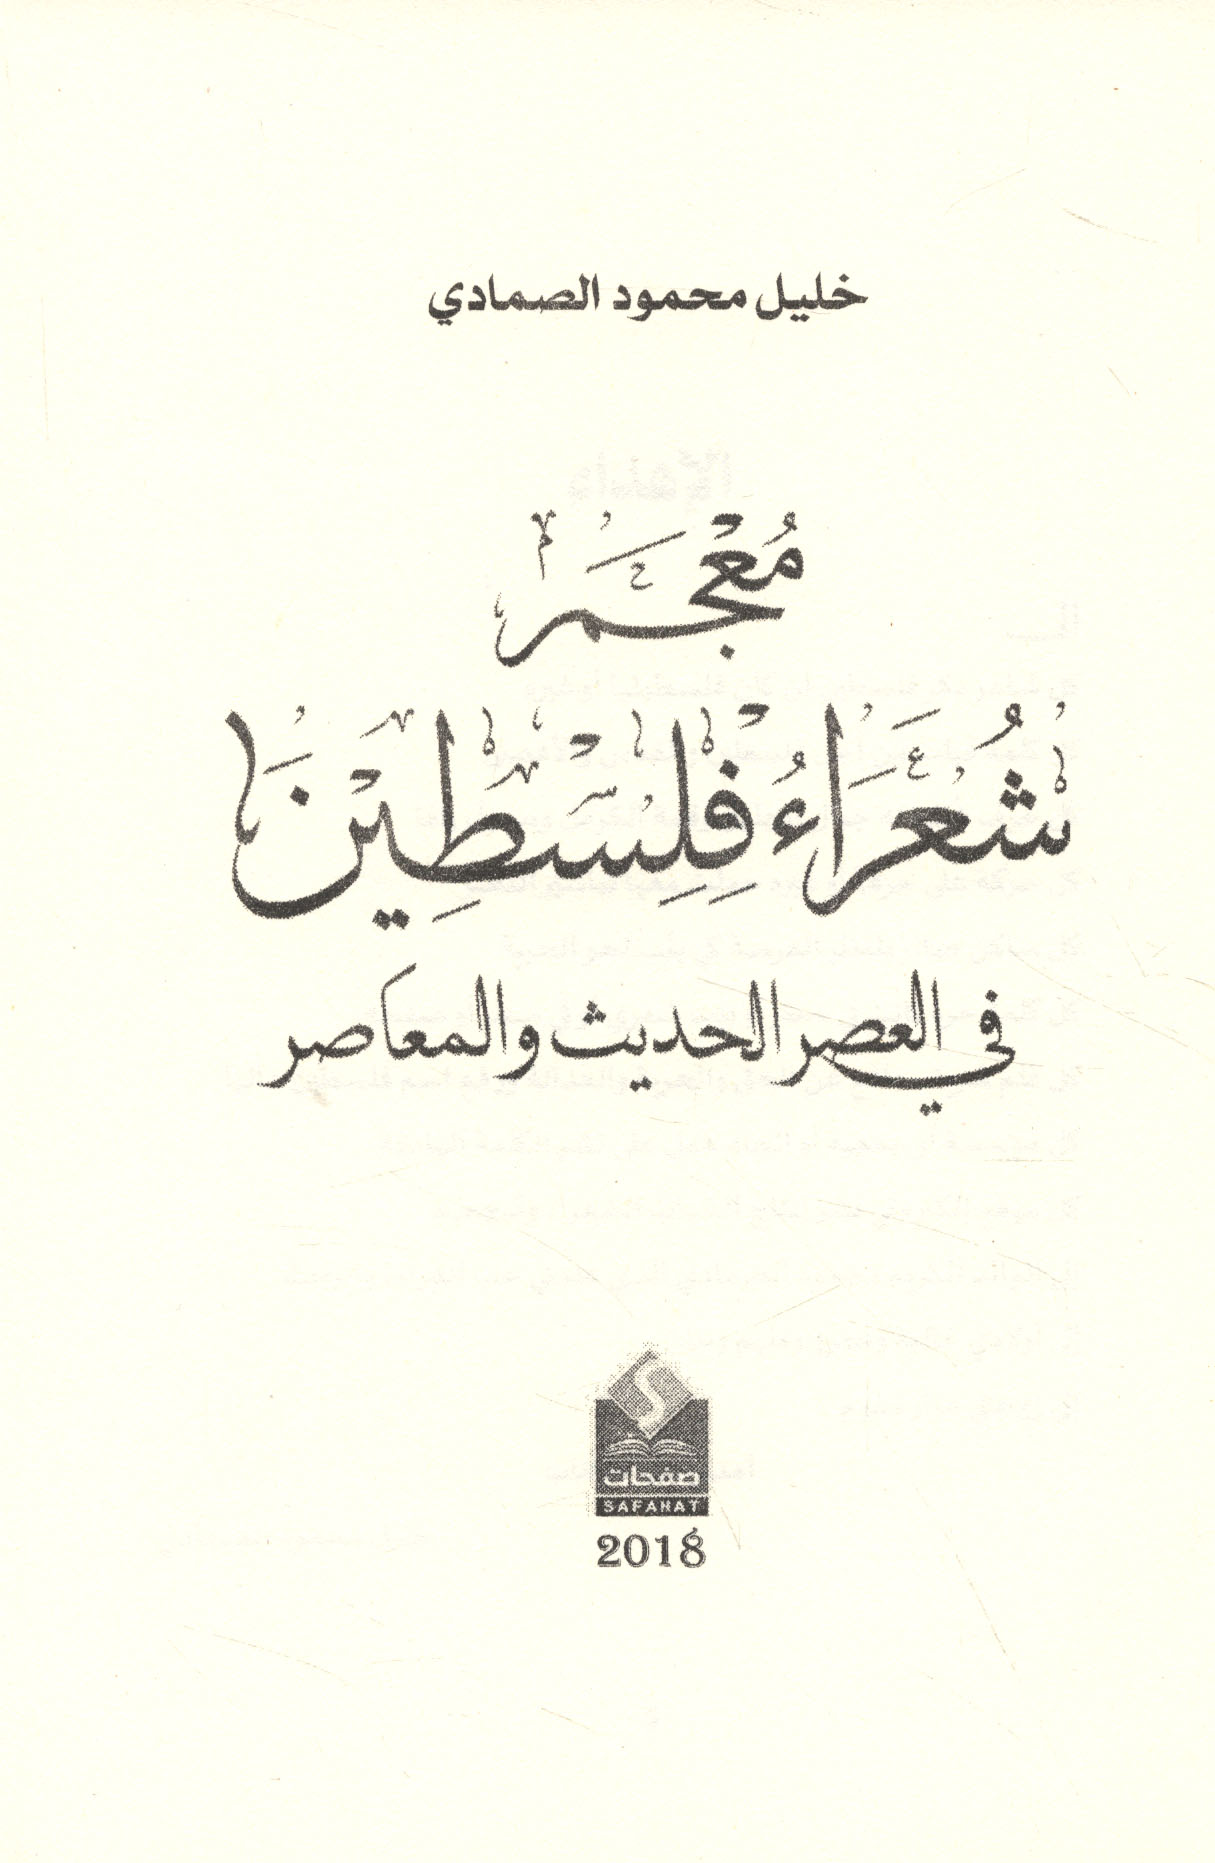 خليل محمود الصمادي
مُعْجَم
شُعَرَاءُ فِلِسْطِيْنَ
في العصر الحديث والمعاصر
صفحات
SAFAHAT
2018